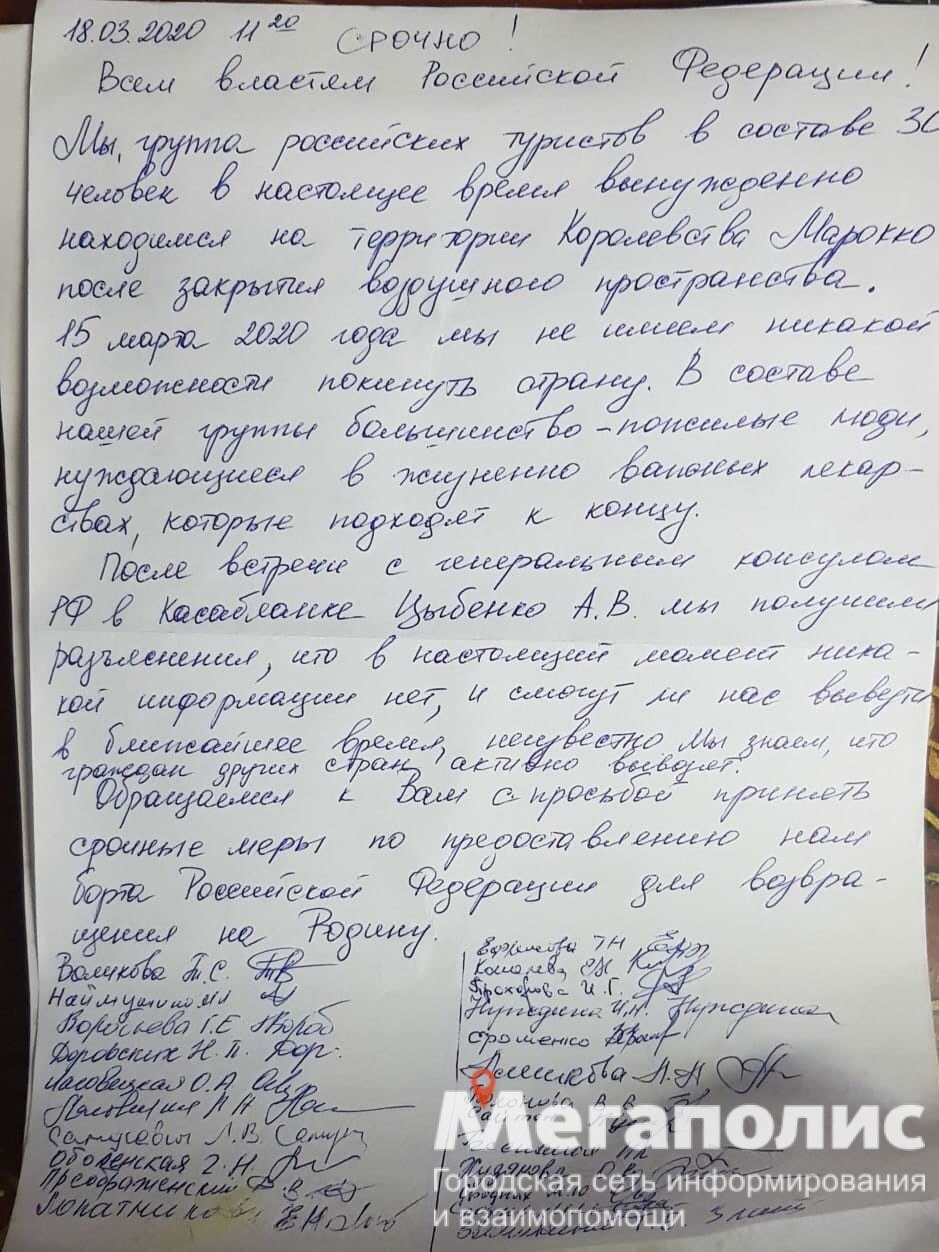 18.03.2020 11 20 СРОЧНО!
Всем властям Российской Федерации!
Мы, группа российских туристов в составе 30
человек в настоящее время вынужденно
находимся на территории Королевства Марокко
после закрытия воздушного пространства.
15 марта 2020 года мы не имеем никакой
возможности покинуть страну. В составе
нашей группы большинство - пожилые люди,
нуждающиеся в жизненно важных лекар-
ствах, которые подходят к концу.
После встречи с генеральным консулом
РФ в Касабланке Цыбенко А.В. мы получили
разъяснения, что в настоящий момент ника-
кой информации нет, и смогут ли нас вывезти
в ближайшее время, неизвестно. Мы знаем, что
граждан других стран активно вывозят.
Обращаемся к Вам с просьбой принять
срочные меры по предоставлению нам
борта Российской Федерации для возвра-
щения на Родину.
Воликова Т.С.
Воробьева Г.Е.
Доровских Н.П. Дор.
О.А.
Самусевич Л.В.
Оболенская Г.Н.
Преображенский В
Лопатников
Ефимова ТН
Ковалева ЕЖ
Прохорова И.Г.
Нуждина И.Н. Нуждина
Ярошенко
Л.Н
Худякова
Мегаполис
Городская сеть информирования
и взаимопомощи